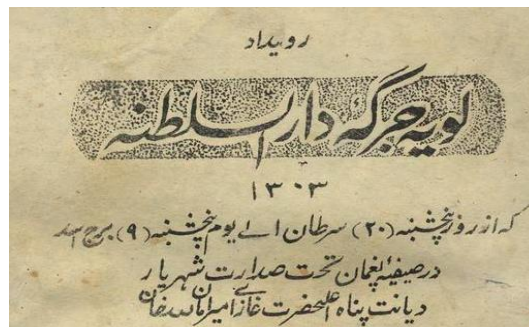 رویداد
لویه جرگهٔ دارالسلطنه
۱۳۰۳
که از روز پنجشنبه (۲۰) سرطان الے یوم پنجشنبه (۹) برج اسد
در صیفیهٔ پغمان تحت صدارت شهریار
دیانت پناه اعلیحضرت غازی امیر امان الله خان